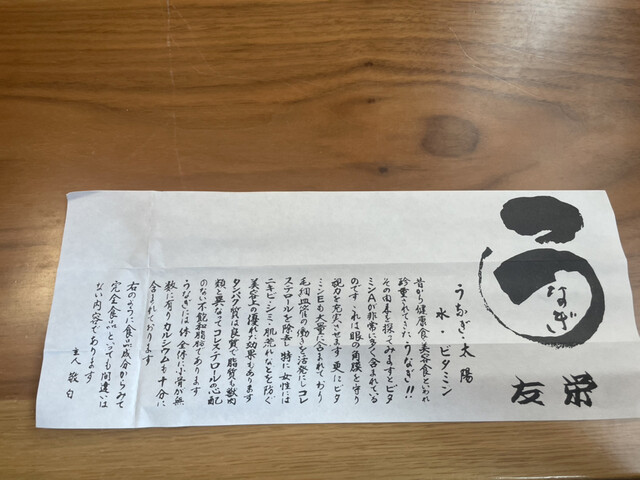 うなぎ
友栄
うなぎ・太陽
水・ビタミン
昔から健康食・美容食といわれ
珍重されてきた、うなぎ!!
その由来を探ってみますとビタ
ミンAが非常に多く含まれている
のです これは眼の角膜を守り
視力を充実させます 更にビタ
ミンEも大量に含まれており
毛細血管の働きを活発にしコレ
ステロールを除去し 特に女性には
ニキビ・シミ・肌荒れなどを防ぐ
美容上の優れた効果もあります
タンパク質は良質で脂質も獣肉
類と異なってコレステロールの心配
のない不飽和脂肪であります
うなぎには体全体に小骨が無
数に有りカルシウムも十分に
含まれております
右のように食品成分からみて
完全食品といっても間違いは
ない内容であります
主人 敬白